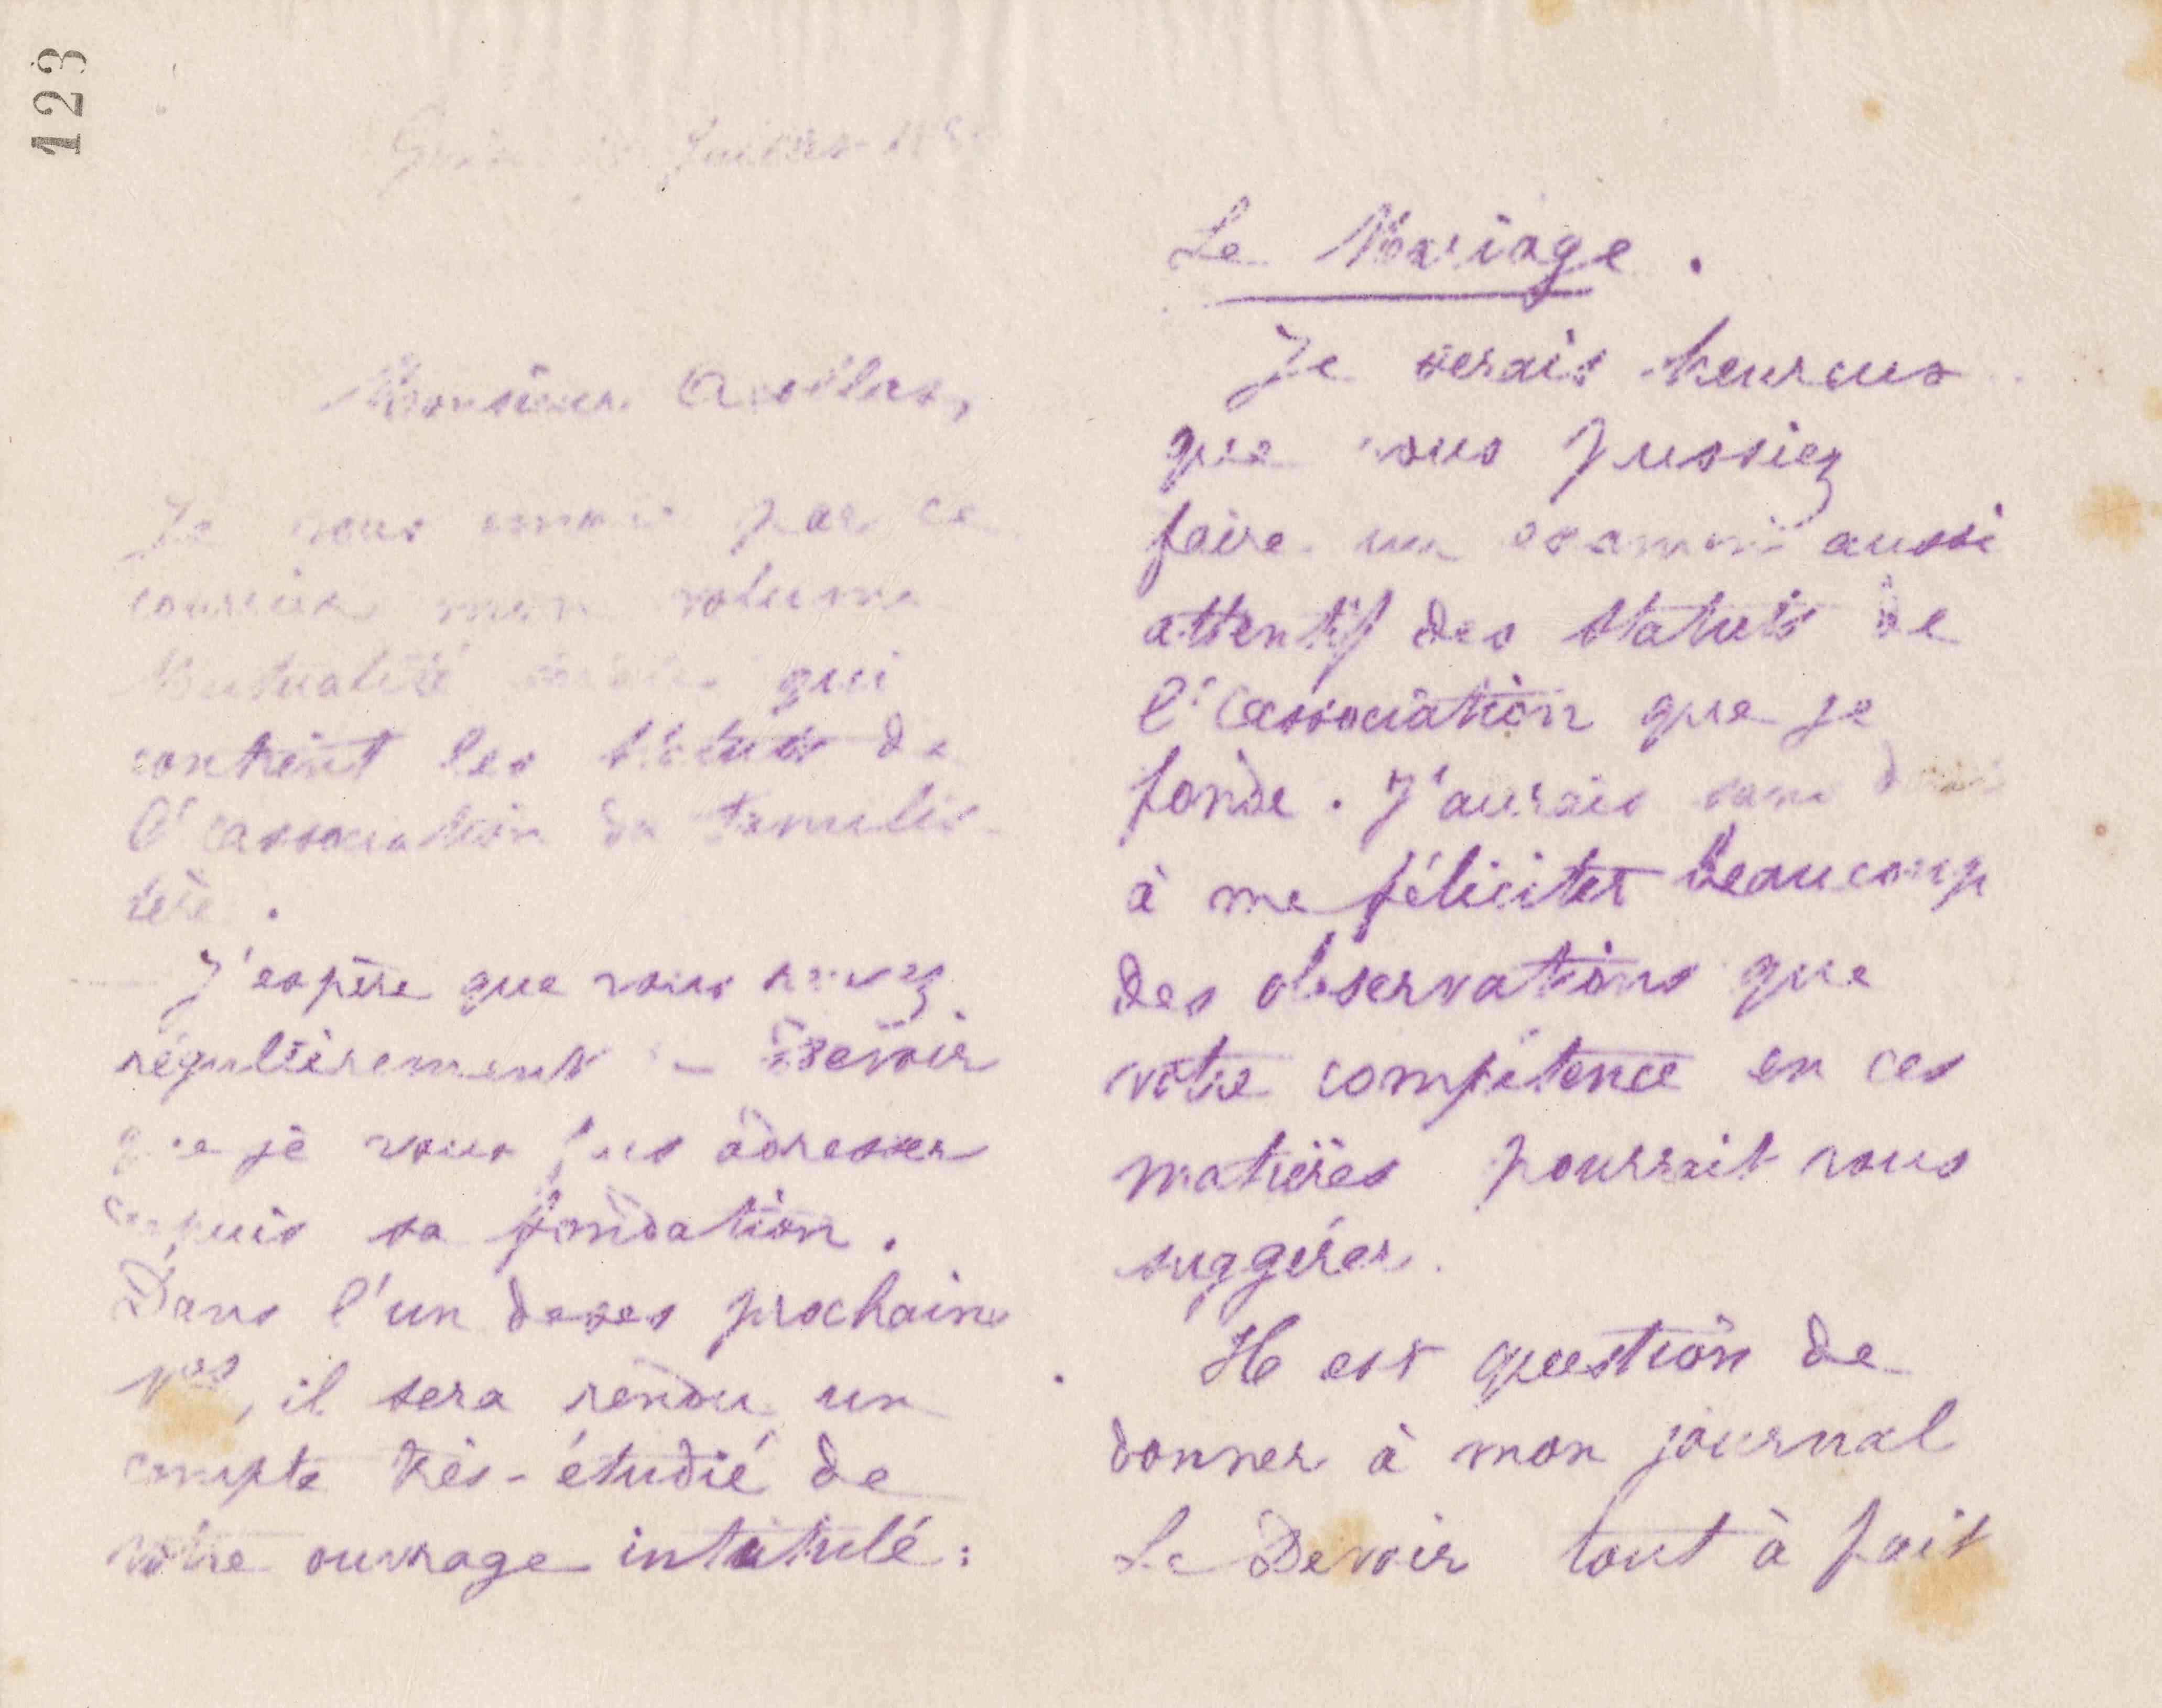 123
Juillet
Monsieur Acollas,
Je vous envoie par ce
courrier mon volume
Mutualité sociale qui
contient les statuts de
l'association du Familis-
tère.
J'espère que vous recevez
régulièrement le Devoir
que je vous fais adresser
depuis sa fondation.
Dans l'un de ses prochains
Nos, il sera rendu un
compte très-étudié de
votre ouvrage intitulé:
Le Mariage.
Je serais heureux
que vous pussiez
faire un examen aussi
attentif des statuts de
l'association que je
fonde. J'aurais sans doute
à me féliciter beaucoup
des observations que
votre compétence en ces
matières pourrait vous
suggérer.
Il est question de
donner à mon journal
Le Devoir tout à fait